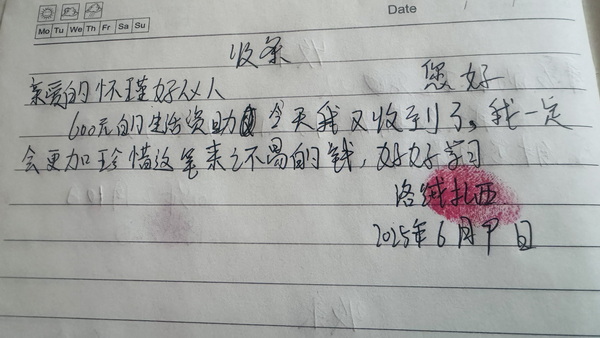 Date
Mo Tu We Th Fr Sa Su
收条
亲爱的怀瑾好心人 您好
600元的生活资助 今天我又收到了。我一定
会更加珍惜这笔来之不易的钱，好好学习
洛绒扎西
2025年6月 日